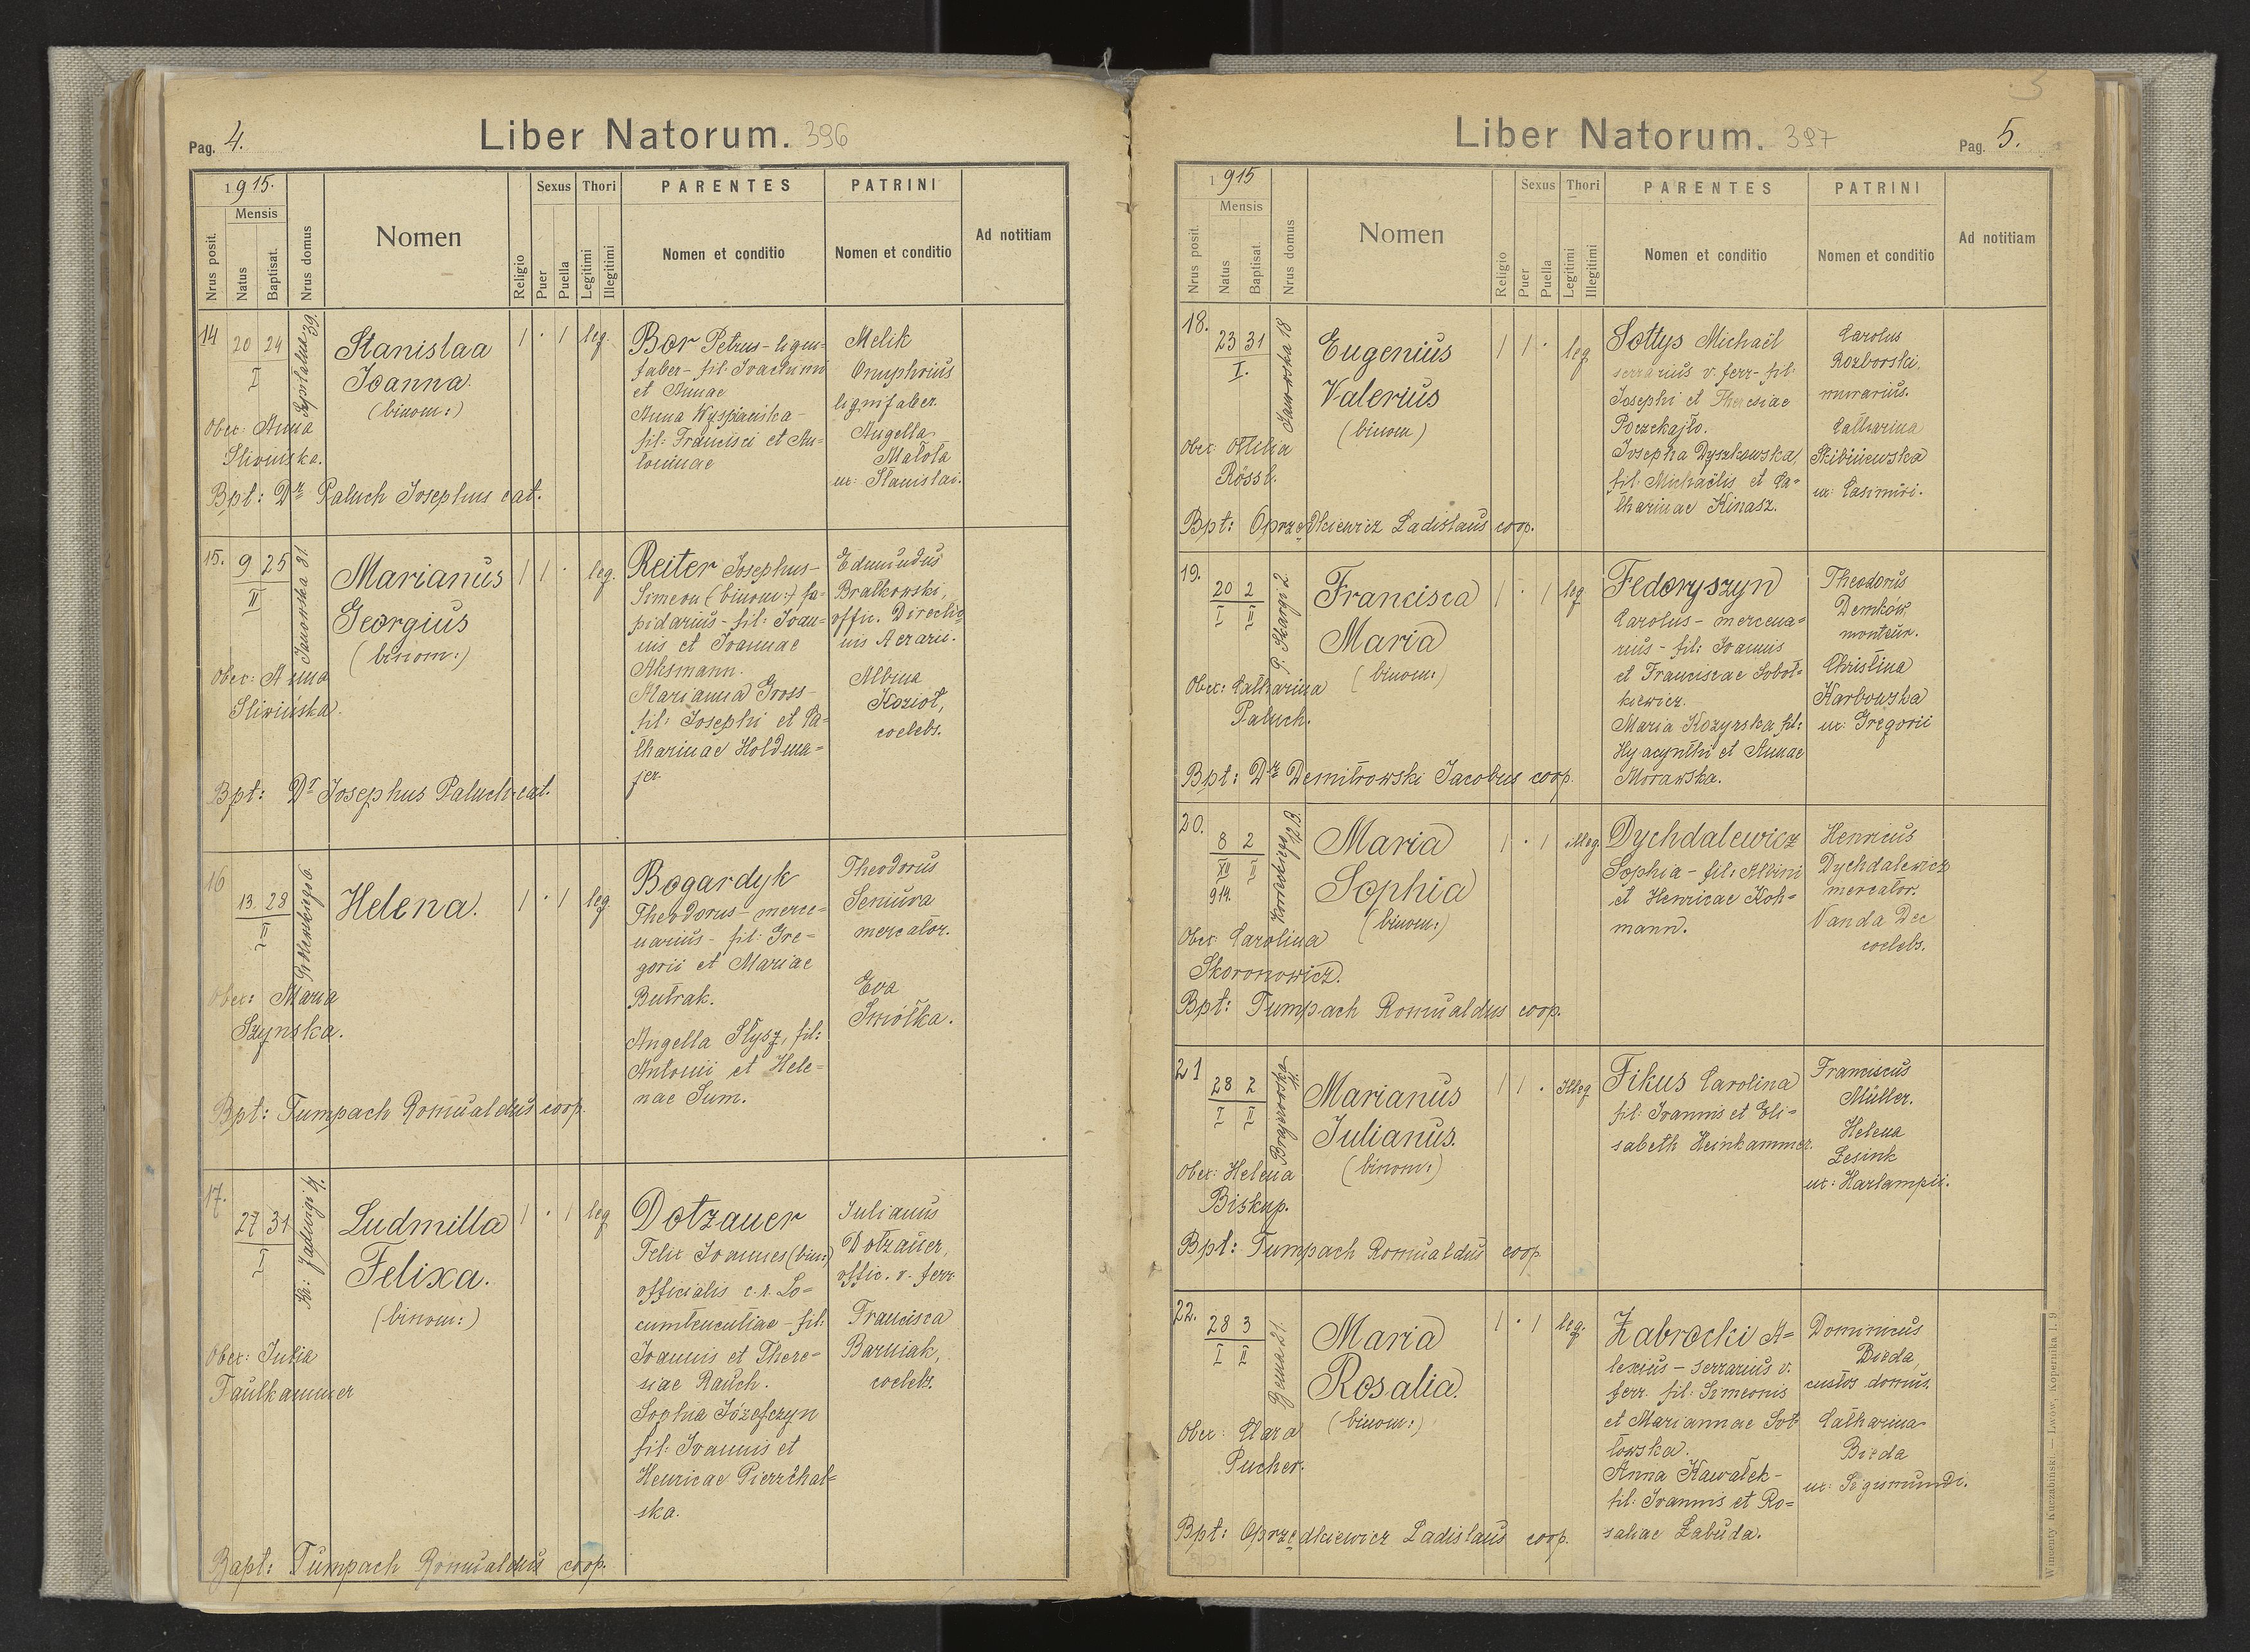 Pag. 4.
Liber Natorum. 396
1915.
Mensis
Nrus posit.
Natus
Baptisat.
Nrus domus
Nomen
Religio
Sexus
Puer
Puella
Thori
Legitimi
Illegitimi
PARENTES
Nomen et conditio
PATRINI
Nomen et conditio
Ad notitiam
14
20 24
I
39.
Stanislaa
Joanna.
(binom:)
1 · 1 leg.
Obst: Anna
Sliwińska.
Bpt: Dr Paluch Josephus cat.
Bor Petrus - ligni=
faber - fil: Joachimi
et Annae
Anna Wyspiańska -
fil: Francisci et An=
toninae
Melik
Onuphrius
lignifaber.
Angella
Małota
ux: Stanislai.
15.
9 25
II
Janowska 81.
Marianus
Georgius
(binom:)
1 1 · leg.
Obst: Anna
Sliwińska.
Bpt: Dr Josephus Paluch cat.
Reiter Josephus -
Simeon (binom:) la=
pidarius - fil: Joan=
nis et Joannae
Aksmann.
Marianna Gross -
fil: Josephi et Ca=
tharinae Holdma=
jer.
Edmundus
Bratkowski,
offic. Directio
nis Aerarii.
Albina
Kozioł,
coelebs.
16
13. 28
II
Gródeckiego 6.
Helena.
1 · 1 leg
Obst: Maria
Szynska.
Bpt: Tumpach Romualdus coop.
Bogardyk
Theodorus - merce=
narius - fil: Gre=
gorii et Mariae
Butrak.
Angella Słysz, fil:
Antonii et Hele=
nae Sum.
Theodorus
Seniura
mercator.
Eva
Smiołka.
17.
27 31
I
Kr: Jadwigi 4.
Ludmilla
Felixa.
(binom:)
1 · 1 leg
Obst: Julia
Faulkammer
Bapt: Tumpach Romualdus coop.
Dotzauer
Felix Joannes (bin:)
officialis c. r. Lo=
cumtenentiae - fil:
Joannis et There=
siae Rauch.
Sophia Józefczyn
fil: Joannis et
Henricae Pierzchal=
ska.
Julianus
Dotzauer,
offic. v. ferr
Francisca
Barniak,
coelebs.
Liber Natorum. 397
Pag. 5.
1915
Mensis
Nrus posit.
Natus
Baptisat.
Nrus domus
Nomen
Religio
Sexus
Puer
Puella
Thori
Legitimi
Illegitimi
PARENTES
Nomen et conditio
PATRINI
Nomen et conditio
Ad notitiam
18.
23 31
I.
Janowska 18
Eugenius
Valerius
(binom)
1 1 · leg
Obst: Othilia
Rössl.
Bpt: Oprzędkiewicz Ladislaus coop.
Sołtys Michaël
serrarius v. ferr - fil:
Josephi et Theresiae
Poczekajło.
Josepha Dyszkowska,
fil: Michaëlis et Ca=
tharinae Kinasz.
Carolus
Rozborski,
murarius.
Catharina
Skibniewska
ux: Casimiri.
19.
20 2
I II
P. Skargi 2
Francisca
Maria
(binom:)
1 · 1 leg
Obst: Catharina
Paluch.
Bpt: Dr Demitrowski Jacobus coop.
Fedoryszyn
Carolus - mercena=
rius - fil: Joannis
et Franciscae Sobot=
kiewicz.
Maria Kozyrska fil:
Hyacynthi et Annae
Morawska.
Theodorus
Demków
monteur.
Christina
Karbowska
ux: Gregorii
20.
8 2
XII II
914.
Maria
Sophia
(binom:)
1 · 1 illeg
Obst: Carolina
Skoronowicz.
Bpt: Tumpach Romualdus coop.
Dychdalewicz
Sophia - fil: Albini
et Henricae Koh=
mann.
Henricus
Dychdalewicz
mercator.
Vanda Dec
coelebs.
21
28 2
I II
Marianus
Julianus.
(binom:)
1 1 · Illeg
Obst: Helena
Biskup.
Bpt: Tumpach Romualdus coop
Fikus Carolina
fil: Joannis et Eli=
sabeth Heinkammer.
Franciscus
Müller.
Helena
Lesink
ux: Harlampii.
22.
28 3
I II
Bema 21.
Maria
Rosalia.
(binom:)
1 · 1 leg.
Obst: Clara
Pucher.
Bpt: Oprzędkiewicz Ladislaus coop.
Zabrocki A=
lexius - serrarius v.
ferr. fil: Simeonis
et Mariannae Sob
towska.
Anna Kawałek -
fil: Joannis et Ro=
saliae Łabuda.
Dominicus
Bieda,
custos domus.
Catharina
Bieda
ux: Sigismundi.
Wincenty Kuczabiński. — Lwów, Kopernika l. 9